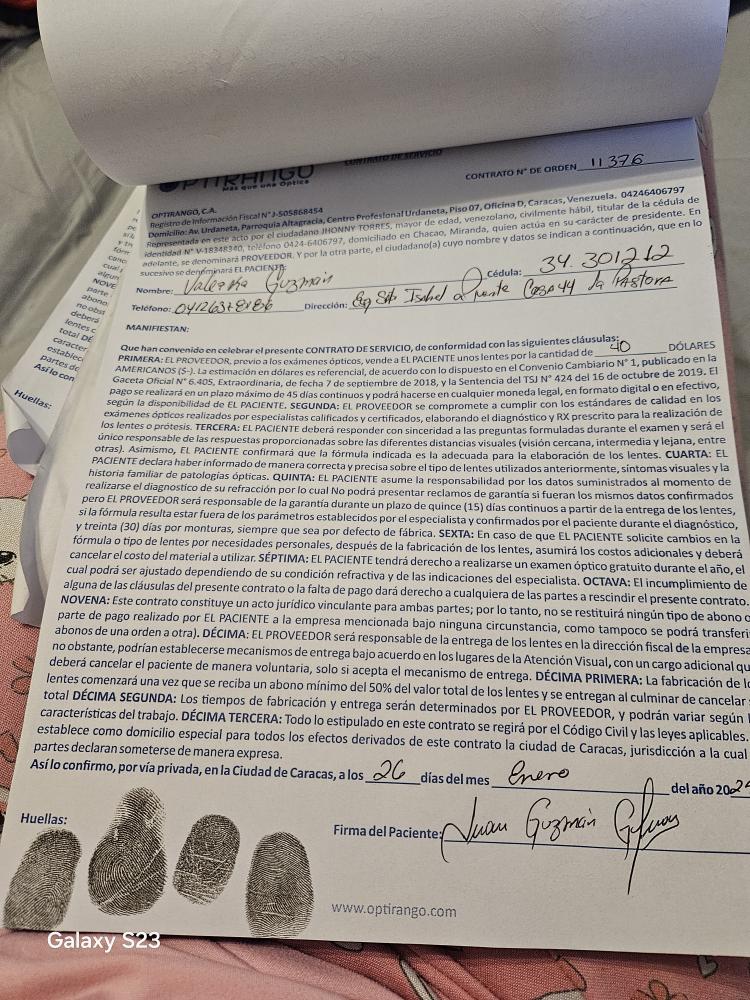 CONTRATO DE SERVICIO
OPTIRANGO
Más que una Óptica
CONTRATO N° DE ORDEN 11376
OPTIRANGO, C.A.
Registro de Información Fiscal N° J-505868454
Domicilio: Av. Urdaneta, Parroquia Altagracia, Centro Profesional Urdaneta, Piso 07, Oficina D, Caracas, Venezuela. 04246406797
Representada en este acto por el ciudadano JHONNY TORRES, mayor de edad, venezolano, civilmente hábil, titular de la cédula de
identidad N° V-18348340, teléfono 0424-6406797, domiciliado en Chacao, Miranda, quien actúa en su carácter de presidente. En
adelante, se denominará PROVEEDOR. Y por la otra parte, el ciudadano(a) cuyo nombre y datos se indican a continuación, que en lo
sucesivo se denominará EL PACIENTE:
Nombre: Valeria Guzmán Cédula: 34.301212
Teléfono: Dirección: Esq Sta Isabel a puente Casa 44 la Pastora
MANIFIESTAN:
Que han convenido en celebrar el presente CONTRATO DE SERVICIO, de conformidad con las siguientes cláusulas:
PRIMERA: EL PROVEEDOR, previo a los exámenes ópticos, vende a EL PACIENTE unos lentes por la cantidad de 40 DÓLARES
AMERICANOS ($-). La estimación en dólares es referencial, de acuerdo con lo dispuesto en el Convenio Cambiario N° 1, publicado en la
Gaceta Oficial N° 6.405, Extraordinaria, de fecha 7 de septiembre de 2018, y la Sentencia del TSJ N° 424 del 16 de octubre de 2019. El
pago se realizará en un plazo máximo de 45 días continuos y podrá hacerse en cualquier moneda legal, en formato digital o en efectivo,
según la disponibilidad de EL PACIENTE. SEGUNDA: EL PROVEEDOR se compromete a cumplir con los estándares de calidad en los
exámenes ópticos realizados por especialistas calificados y certificados, elaborando el diagnóstico y RX prescrito para la realización de
los lentes o prótesis. TERCERA: EL PACIENTE deberá responder con sinceridad a las preguntas formuladas durante el examen y será el
único responsable de las respuestas proporcionadas sobre las diferentes distancias visuales (visión cercana, intermedia y lejana, entre
otras). Asimismo, EL PACIENTE confirmará que la fórmula indicada es la adecuada para la elaboración de los lentes. CUARTA: EL
PACIENTE declara haber informado de manera correcta y precisa sobre el tipo de lentes utilizados anteriormente, síntomas visuales y la
historia familiar de patologías ópticas. QUINTA: EL PACIENTE asume la responsabilidad por los datos suministrados al momento de
realizarse el diagnostico de su refracción por lo cual No podrá presentar reclamos de garantía si fueran los mismos datos confirmados
pero EL PROVEEDOR será responsable de la garantía durante un plazo de quince (15) días continuos a partir de la entrega de los lentes,
si la fórmula resulta estar fuera de los parámetros establecidos por el especialista y confirmados por el paciente durante el diagnóstico,
y treinta (30) días por monturas, siempre que sea por defecto de fábrica. SEXTA: En caso de que EL PACIENTE solicite cambios en la
fórmula o tipo de lentes por necesidades personales, después de la fabricación de los lentes, asumirá los costos adicionales y deberá
cancelar el costo del material a utilizar. SÉPTIMA: EL PACIENTE tendrá derecho a realizarse un examen óptico gratuito durante el año, el
cual podrá ser ajustado dependiendo de su condición refractiva y de las indicaciones del especialista. OCTAVA: El incumplimiento de
alguna de las cláusulas del presente contrato o la falta de pago dará derecho a cualquiera de las partes a rescindir el presente contrato.
NOVENA: Este contrato constituye un acto jurídico vinculante para ambas partes; por lo tanto, no se restituirá ningún tipo de abono o
parte de pago realizado por EL PACIENTE a la empresa mencionada bajo ninguna circunstancia, como tampoco se podrá transferi
abonos de una orden a otra). DÉCIMA: EL PROVEEDOR será responsable de la entrega de los lentes en la dirección fiscal de la empresa
no obstante, podrían establecerse mecanismos de entrega bajo acuerdo en los lugares de la Atención Visual, con un cargo adicional qu
deberá cancelar el paciente de manera voluntaria, solo si acepta el mecanismo de entrega. DÉCIMA PRIMERA: La fabricación de lo
lentes comenzará una vez que se reciba un abono mínimo del 50% del valor total de los lentes y se entregan al culminar de cancelar
total DÉCIMA SEGUNDA: Los tiempos de fabricación y entrega serán determinados por EL PROVEEDOR, y podrán variar según l
características del trabajo. DÉCIMA TERCERA: Todo lo estipulado en este contrato se regirá por el Código Civil y las leyes aplicables.
establece como domicilio especial para todos los efectos derivados de este contrato la ciudad de Caracas, jurisdicción a la cual
partes declaran someterse de manera expresa.
Así lo confirmo, por vía privada, en la Ciudad de Caracas, a los 26 días del mes Enero del año 202
Huellas:
Firma del Paciente: Juan Guzmán
www.optirango.com
Huellas:
Galaxy S23